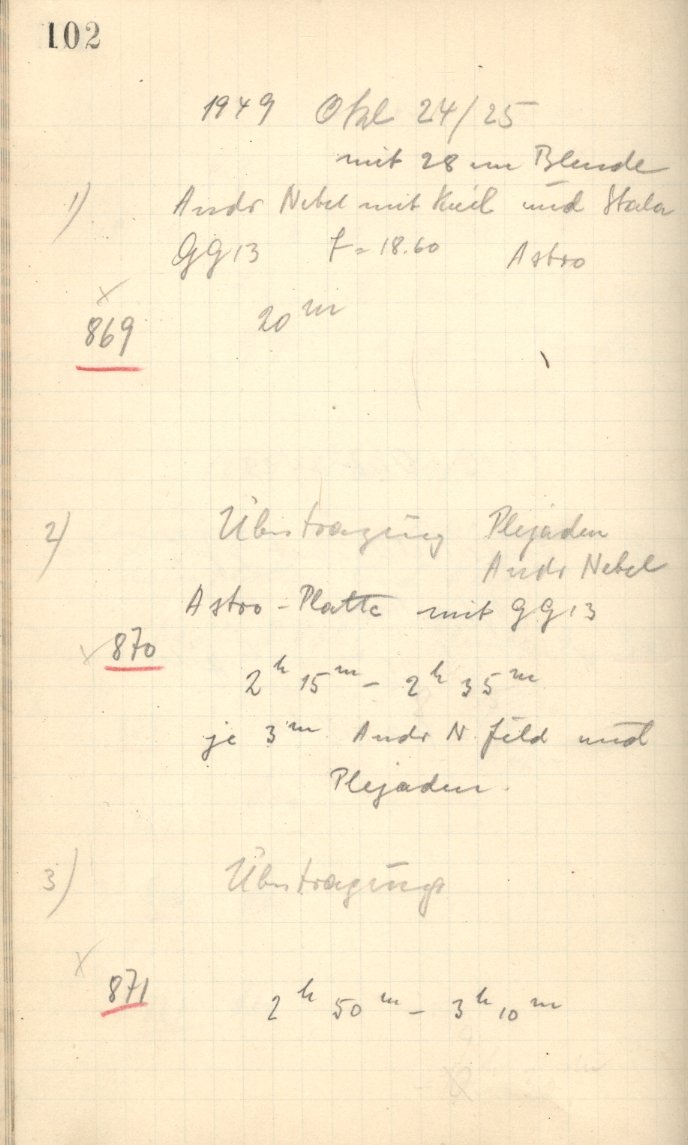 102
1949 Okt 24/25
mit 28 cm Blende
1) Andr Nebel mit Keil und Skala
GG13 F = 18.60 Astro
x
869 20 m
2) Übertragung Plejaden
Andr Nebel
Astro-Platte mit GG13
x 870
2 h 15 m - 2 h 35 m
je 3 m Andr N. feld und
Plejaden.
3) Übertragung
x
871 2 h 50 m - 3 h 10 m